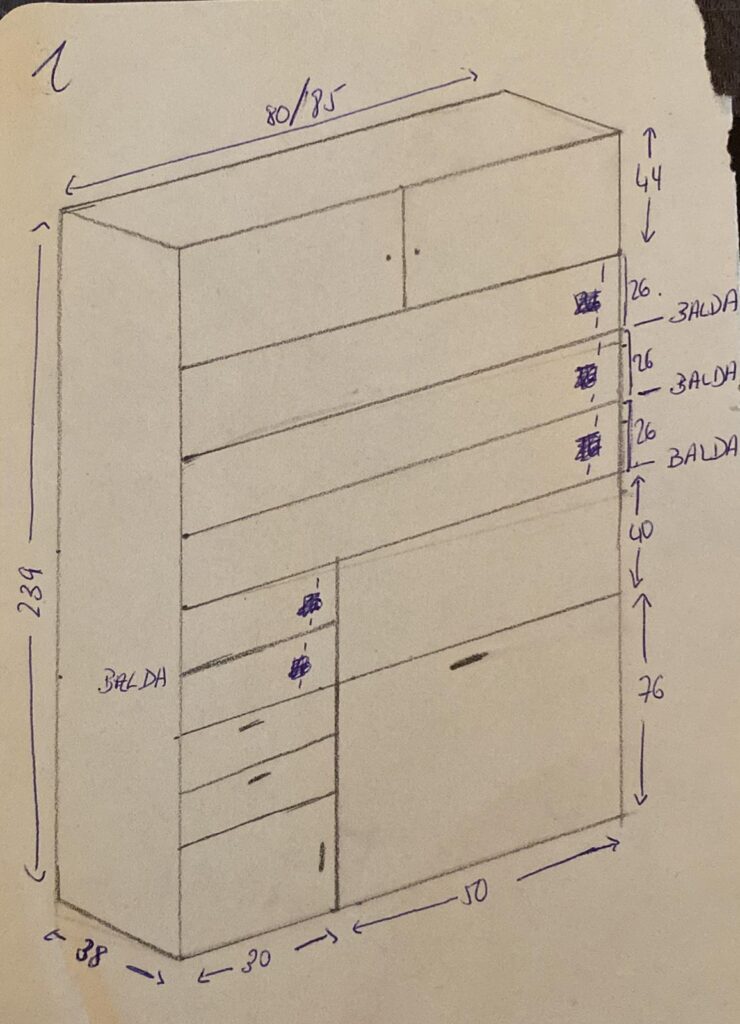 1
80/85
44
26.
BALDA
26
BALDA
26
BALDA
40
239
BALDA
76
50
30
38